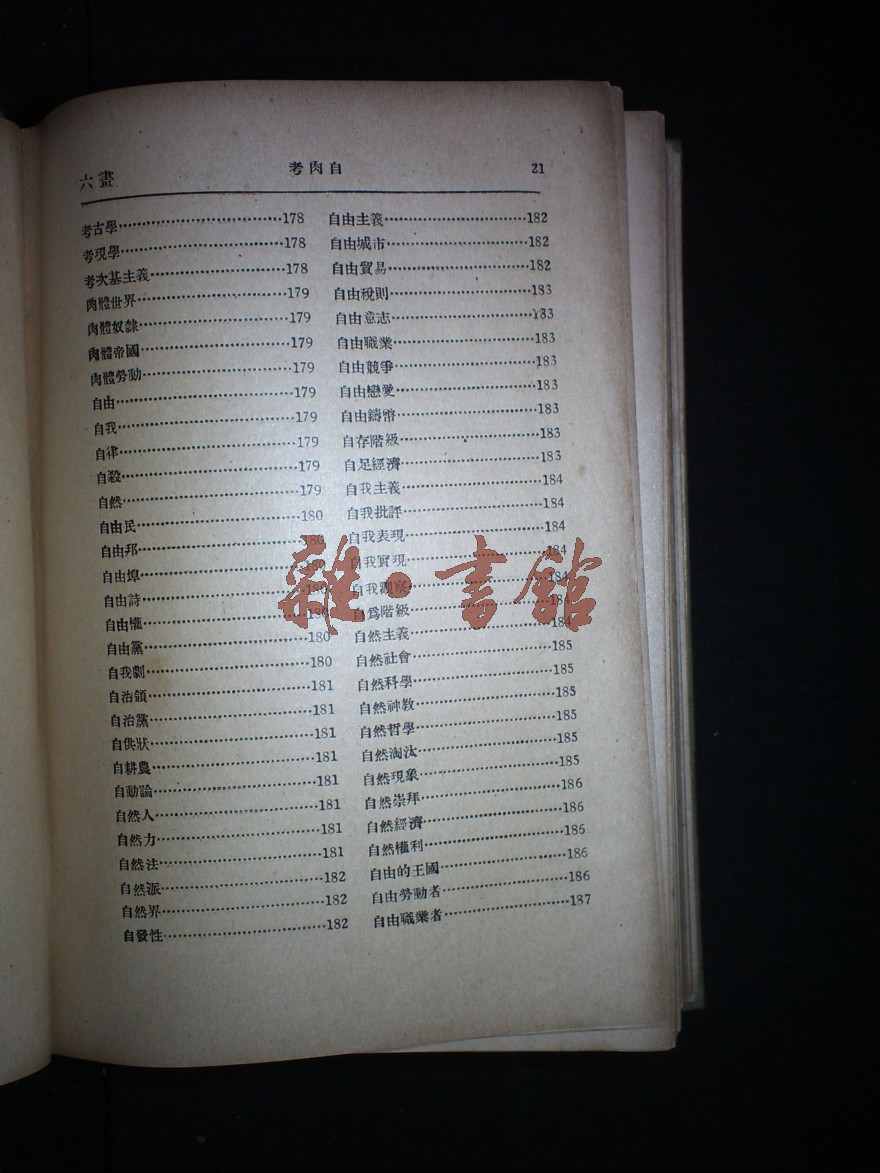 六畫
考肉自
21
考古學…178
考現學…178
考次基主義…178
肉體世界…179
肉體奴隸…179
肉體帝國…179
肉體勞動…179
自由…179
自我…179
自律…179
自殺…179
自然…179
自由民…180
自由邦…180
自由埠…180
自由詩…180
自由權…180
自由黨…180
自我劇…180
自治領…181
自治黨…181
自供狀…181
自耕農…181
自動論…181
自然人…181
自然力…181
自然法…181
自然派…182
自然界…182
自發性…182
自由主義…182
自由城市…182
自由貿易…182
自由稅則…183
自由意志…183
自由職業…183
自由競爭…183
自由戀愛…183
自由鑄幣…183
自存階級…183
自足經濟…183
自我主義…184
自我批評…184
自我表現…184
自我實現…184
自我觀察…184
自爲階級…184
自然主義…184
自然社會…185
自然科學…185
自然神教…185
自然哲學…185
自然淘汰…185
自然現象…185
自然崇拜…186
自然經濟…186
自然權利…186
自由的王國…186
自由勞動者…186
自由職業者…187
雜·書館